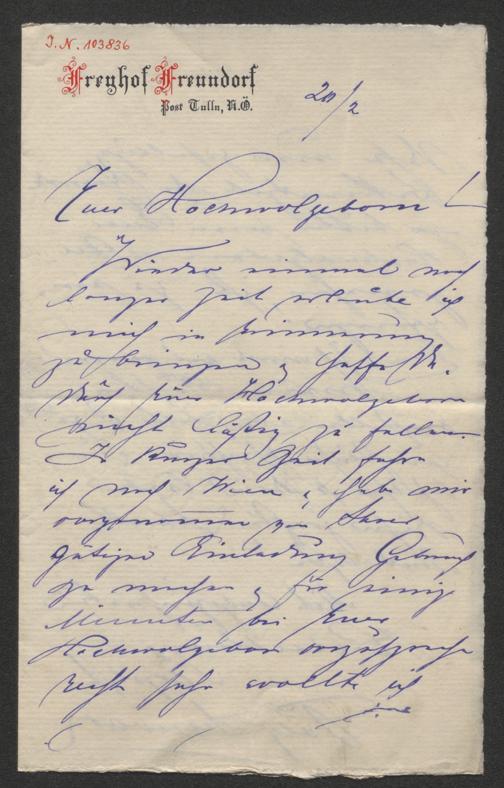 I.N. 103836
Freyhof Freundorf
Post Tulln, N.Ö.
20/2
Euer Hochwolgeborn!
Wieder einmal nach
langer Zeit erlaube ich
mich in Erinnerung
zu bringen & hoffe
Euer Hochwolgeborn
nicht lästig zu fallen.
In kurzer Zeit fahre
ich nach Wien & habe mir
vorgenommen von Ihrer
gütigen Einladung Gebrauch
zu machen & für einige
Minuten bei Euer
Hochwolgeborn
recht sehr wollte ich